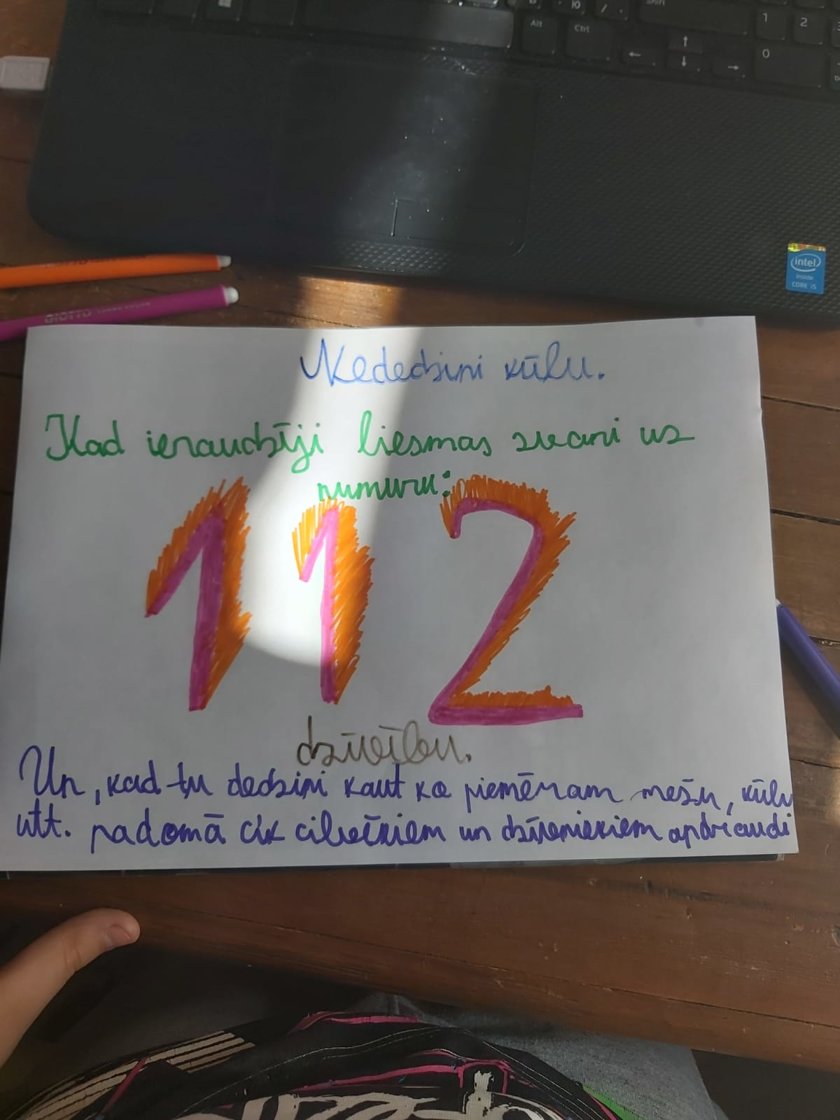 Nededzini kūlu.
Kad ieraudzīji liesmas zvani uz
numuru:
112
dzīvību.
Un, kad tu dedzini kaut ko piemēram mežu, kūlu
utt. padomā cik cilvēkiem un dzīvniekiem apdraudi
intel
inside
CORE i5
GIOTTO
Alt
Ctrl
Shift
1
2
0